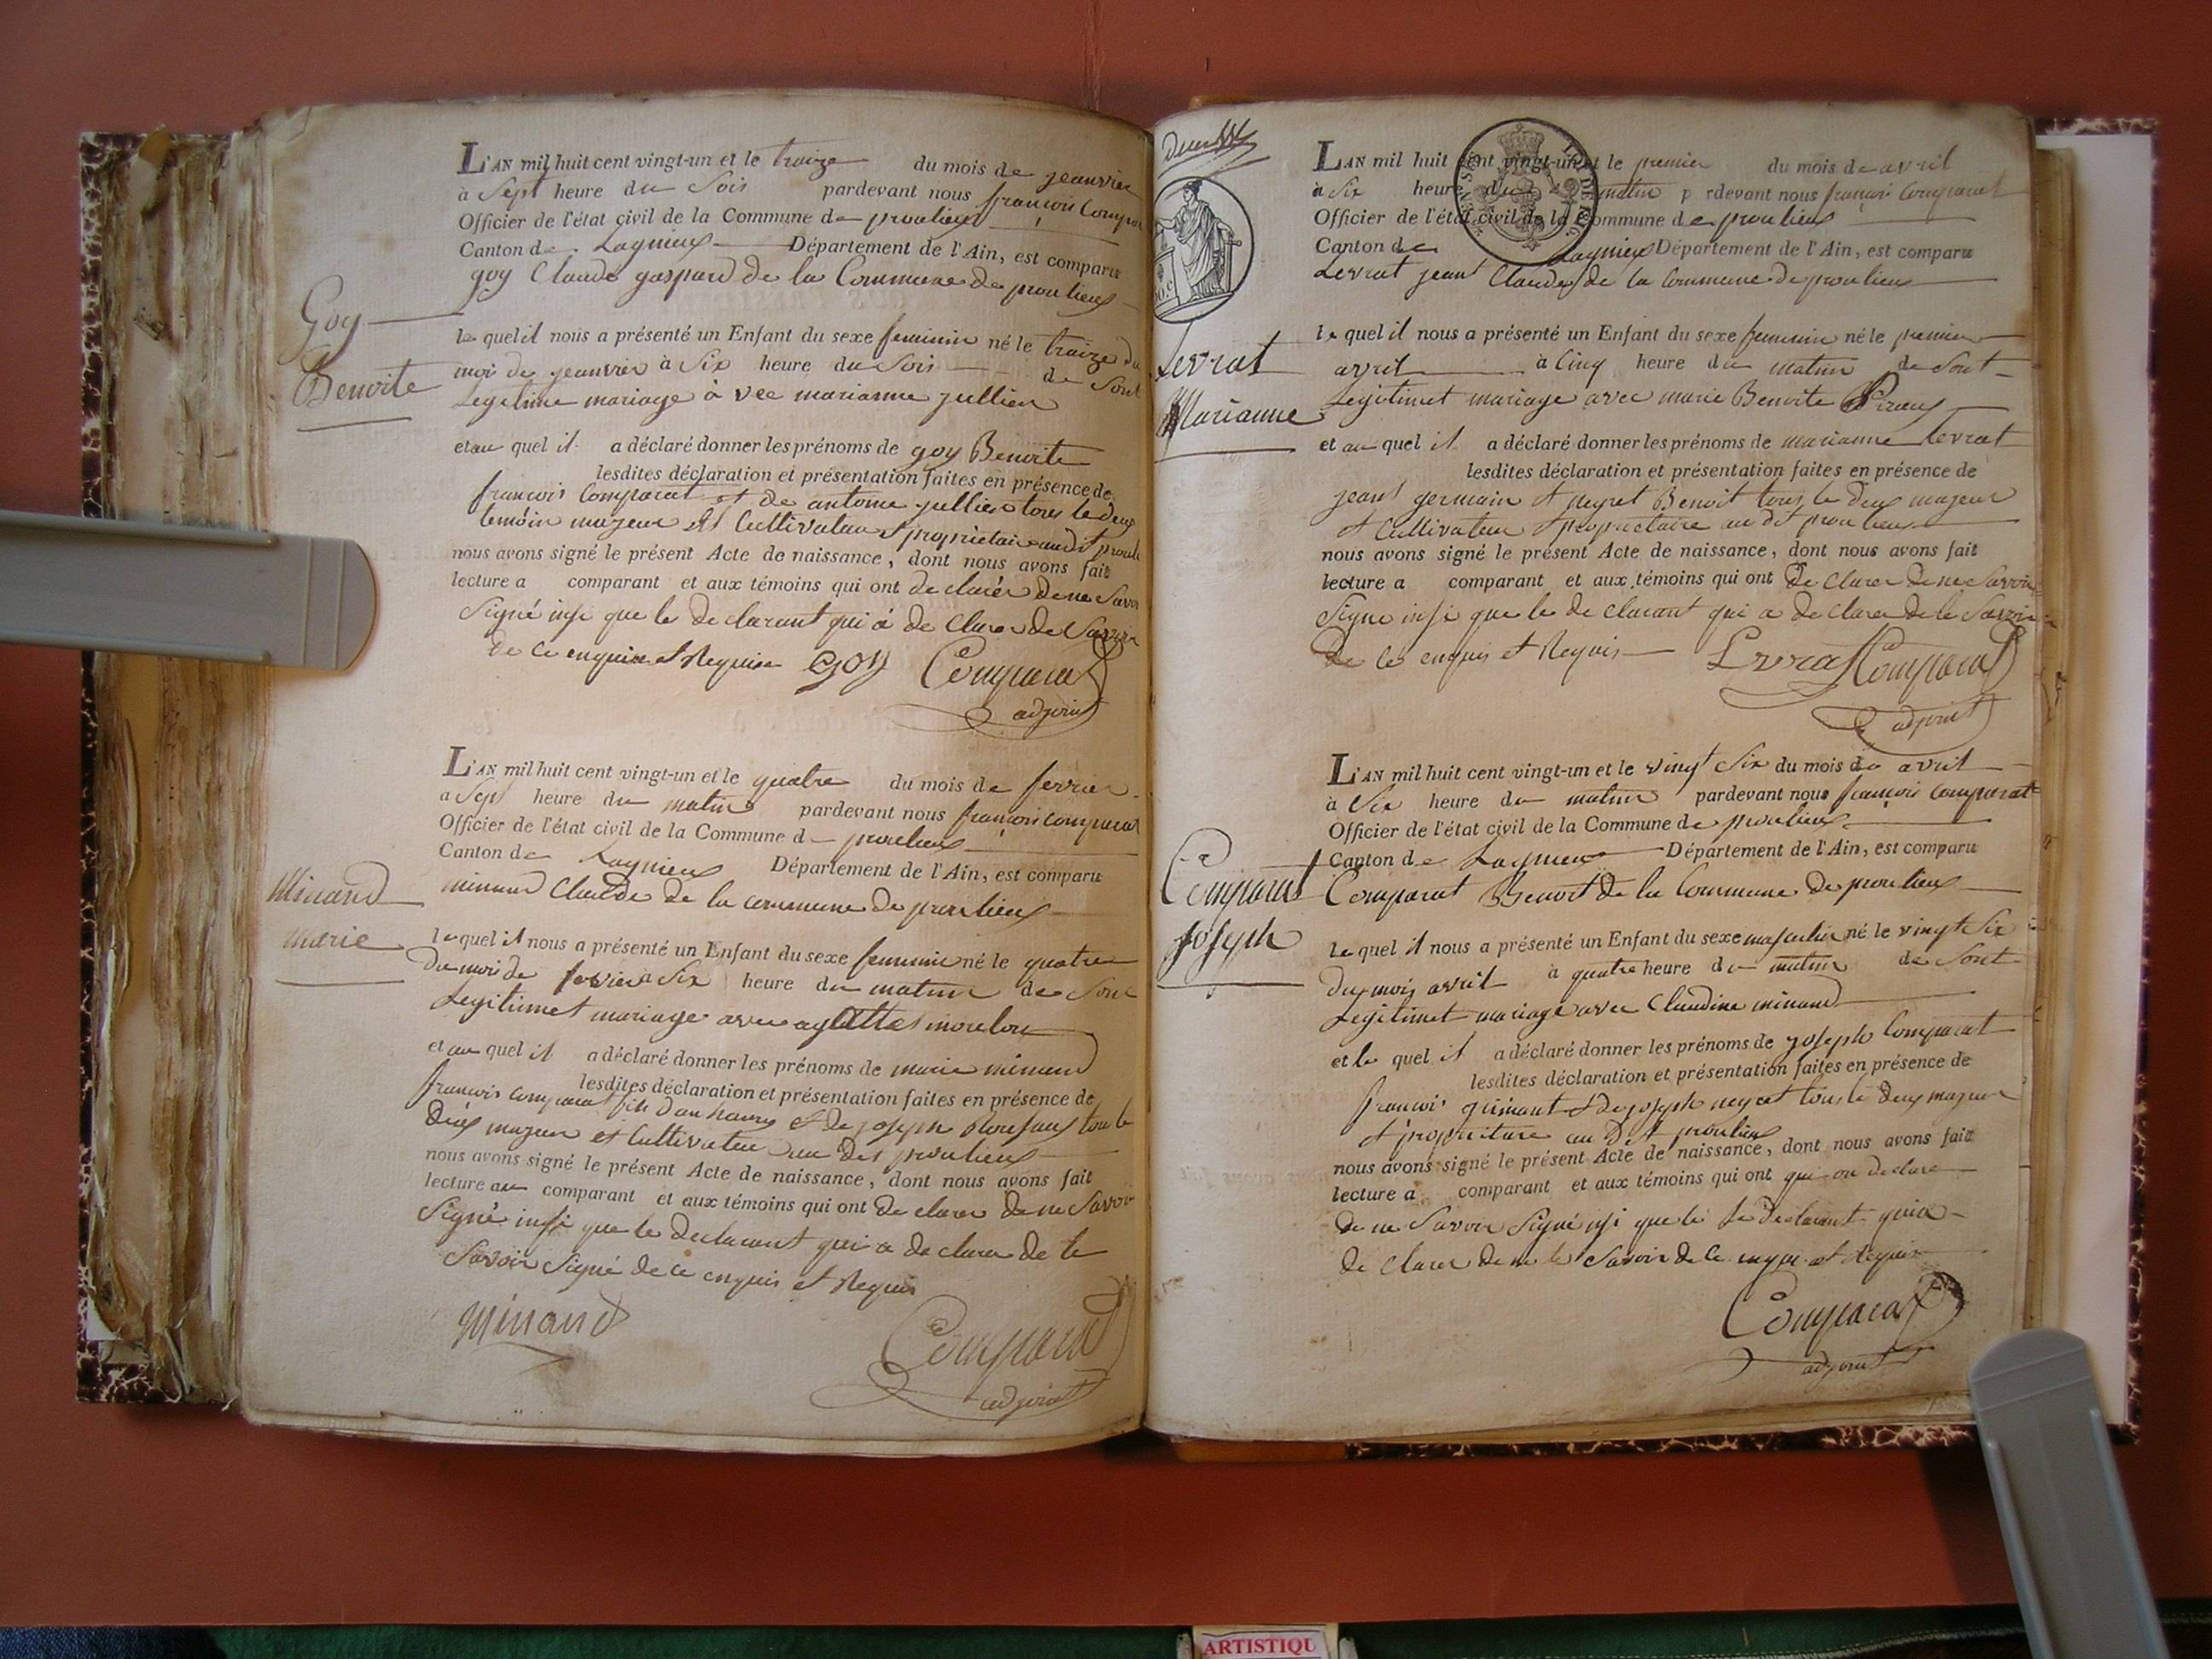 L'AN mil huit cent vingt-un et le traize du mois de jeanvier
à Sept heure du Soir pardevant nous francois Compar
Officier de l'état civil de la Commune de proulieux
Canton de Lagnieux Département de l'Ain, est comparu
goy Claude gaspard de la Commune de proulieux
Goy
Benoite
le quel il nous a présenté un Enfant du sexe feminin né le traize du
moi de jeanvier à Six heure du Soir de Sont
Legitime mariage à vec marianne jullien
et au quel il a déclaré donner les prénoms de goy Benoite
lesdites déclaration et présentation faites en présence de
francois Comparat et de antoine jullien tous le deux
temoin majeur et Cultivateur proprietaire au dit proulie
nous avons signé le présent Acte de naissance, dont nous avons fait
lecture a comparant et aux témoins qui ont de clarér de ne Savoir
Signé insi que le de clarant qui á de Clarer de Savoir
de ce enquise et Requise goy Comparat
adjoint
L'AN mil huit cent vingt-un et le quatre du mois de fevrier
a Sept heure du matin pardevant nous francois comparat
Officier de l'état civil de la Commune de proulieux
Canton de Lagnieux Département de l'Ain, est comparu
minand Claude de la commune de proulieux
Minand
Marie
le quel il nous a présenté un Enfant du sexe feminin né le quatre
du moi de fevrier à Six heure du matin de Sont
Legitimet mariage avec
et au quel il a déclaré donner les prénoms de marie minand
lesdites déclaration et présentation faites en présence de
francois comparat et de joseph tous le
deux majeur et Cultivateur au dit proulieux
nous avons signé le présent Acte de naissance, dont nous avons fait
lecture au comparant et aux témoins qui ont de clarer de ne Savoir
Signé insi que le declarant qui a de clarer de le
Savoir Signé de ce enquis et Requis
Minand Comparat
adjoint
L'AN mil huit cent vingt-un et le premier du mois de avril
à Six heure du matin p rdevant nous françois Comparat
Officier de l'état civil de la Commune de proulieux
Canton de Lagnieux Département de l'Ain, est comparu
Levrat jean Claude de la Commune de proulieux
Levrat
Marianne
le quel il nous a présenté un Enfant du sexe feminin né le premier
avril à Cinq heure du matin de Sont
Legitimet mariage avec marie Benoite
et au quel il a déclaré donner les prénoms de marianne levrat
lesdites déclaration et présentation faites en présence de
jean germain et peyret Benoit tous le deux majeur
et Cultivateur proprietaire au dit proulieux
nous avons signé le présent Acte de naissance, dont nous avons fait
lecture a comparant et aux témoins qui ont de Clarer de ne Savoir
Signe insi que le de Clarant qui a de Clarer de le Savoir
de ce enquis et Requis Levrat Comparat
adjoint
L'AN mil huit cent vingt-un et le vingt Six du mois de avril
à Six heure du matin pardevant nous françois Comparat
Officier de l'état civil de la Commune de proulieux
Canton de Lagnieux Département de l'Ain, est comparu
Comparat Benoit de la Commune de proulieux
Comparat
joseph
le quel il nous a présenté un Enfant du sexe masculin né le vingt Six
du mois avril à quatre heure du matin de Sont
Legitimet mariage avec Claudine minand
et le quel il a déclaré donner les prénoms de joseph Comparat
lesdites déclaration et présentation faites en présence de
francois et de joseph peyret tous le deux majeur
et au dit proulieux
nous avons signé le présent Acte de naissance, dont nous avons fait
lecture a comparant et aux témoins qui ont qui on declare
de ne Savoir Signé insi que le declarant qui a
de Clarer de ne le Savoir de ce enquis et Requis
Comparat
adjoint
ARTISTIQU